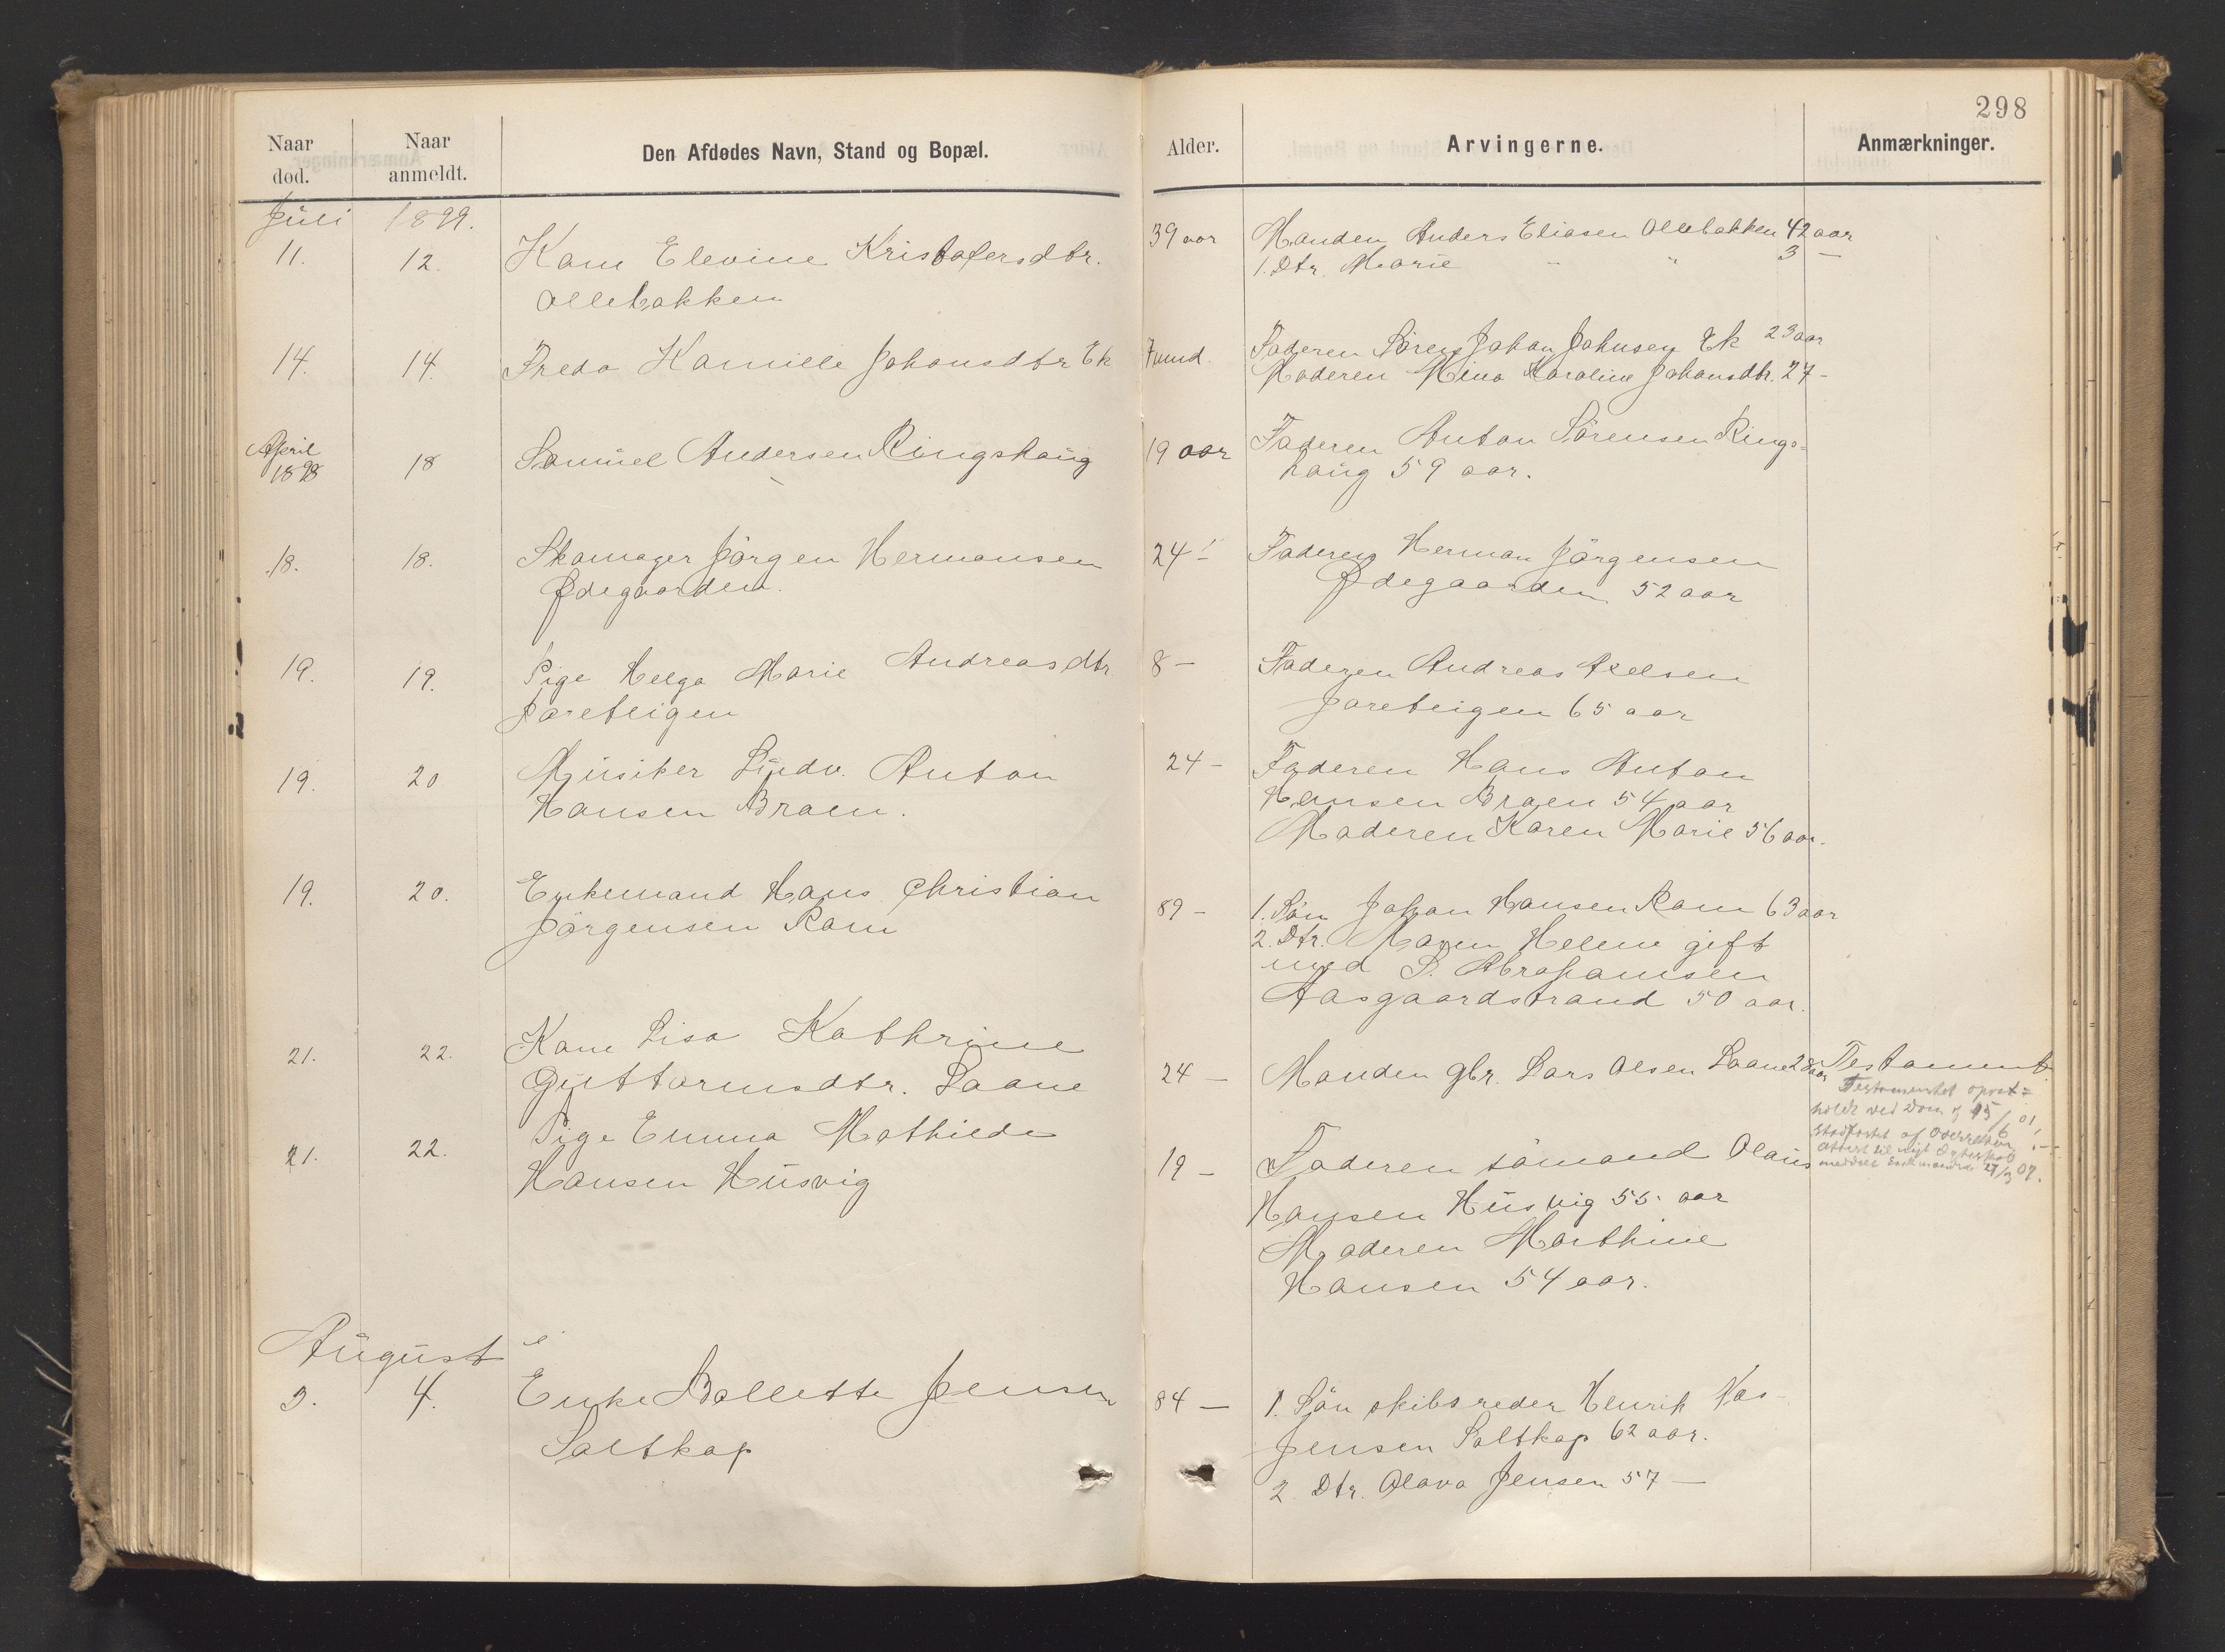 298
Naar død.
Naar anmeldt.
Den Afdødes Navn, Stand og Bopæl.
Alder.
Arvingerne.
Anmærkninger.
Juli 1899.
11. 12. Kone Elevine Kristofersdtr.
Ollebakken
39 aar Manden Anders Eliasen Ollebakken 42 aar
1. Dtr. Marie " " 3 —
14. 14. Freda Kamille Johansdtr Ek
7 mnd. Faderen Sören Johan Johnsen Ek 23 aar
Moderen Mina Karoline Johansdtr. 27 -
April
1898 18 Samuel Andersen Ringshaug
19 aar Faderen Anton Sörensen Rings=
haug 59 aar.
18. 18. Skomager Jörgen Hermansen
Ødegaarden.
24 - Faderen Herman Jörgensen
Ødegaarden 52 aar
19. 19. Pige Helga Marie Andreasdtr
Jareteigen
8 — Faderen Andreas Axelsen
Jareteigen 65 aar
19. 20 Musiker Ludv. Anton
Hansen Braen.
24 - Faderen Hans Anton
Hansen Braen 54 aar
Moderen Karen Marie 56 aar.
19. 20. Enkemand Hans Christian
Jörgensen Ram
89 - 1. Sön Johan Hansen Ram 63 aar
2. Dtr. Maren Helene gift
med S. Abrahamsen
Aasgaardstrand 50 aar.
21. 22. Kone Lisa Kathrine
Guttormsdtr. Laane
24 — Manden gbr. Lars Olsen Laane 28 aar
Testament.
Testamentet opret=
holdt ved Dom af 15/6 01,
stadfæstet af Overretten
27/3 07.
21. 22. Pige Emma Mathilde
Hansen Husvig
19 — Faderen sömand Olaus
Hansen Husvig 55 aar
Moderen Marthine
Hansen 54 aar.
August
3. 4. Enke Bollette Jensen
Saltkop
84 — 1. Sön skibsreder Henrik
Jensen Saltkop 62 aar.
2 Dtr. Olava Jensen 57 —